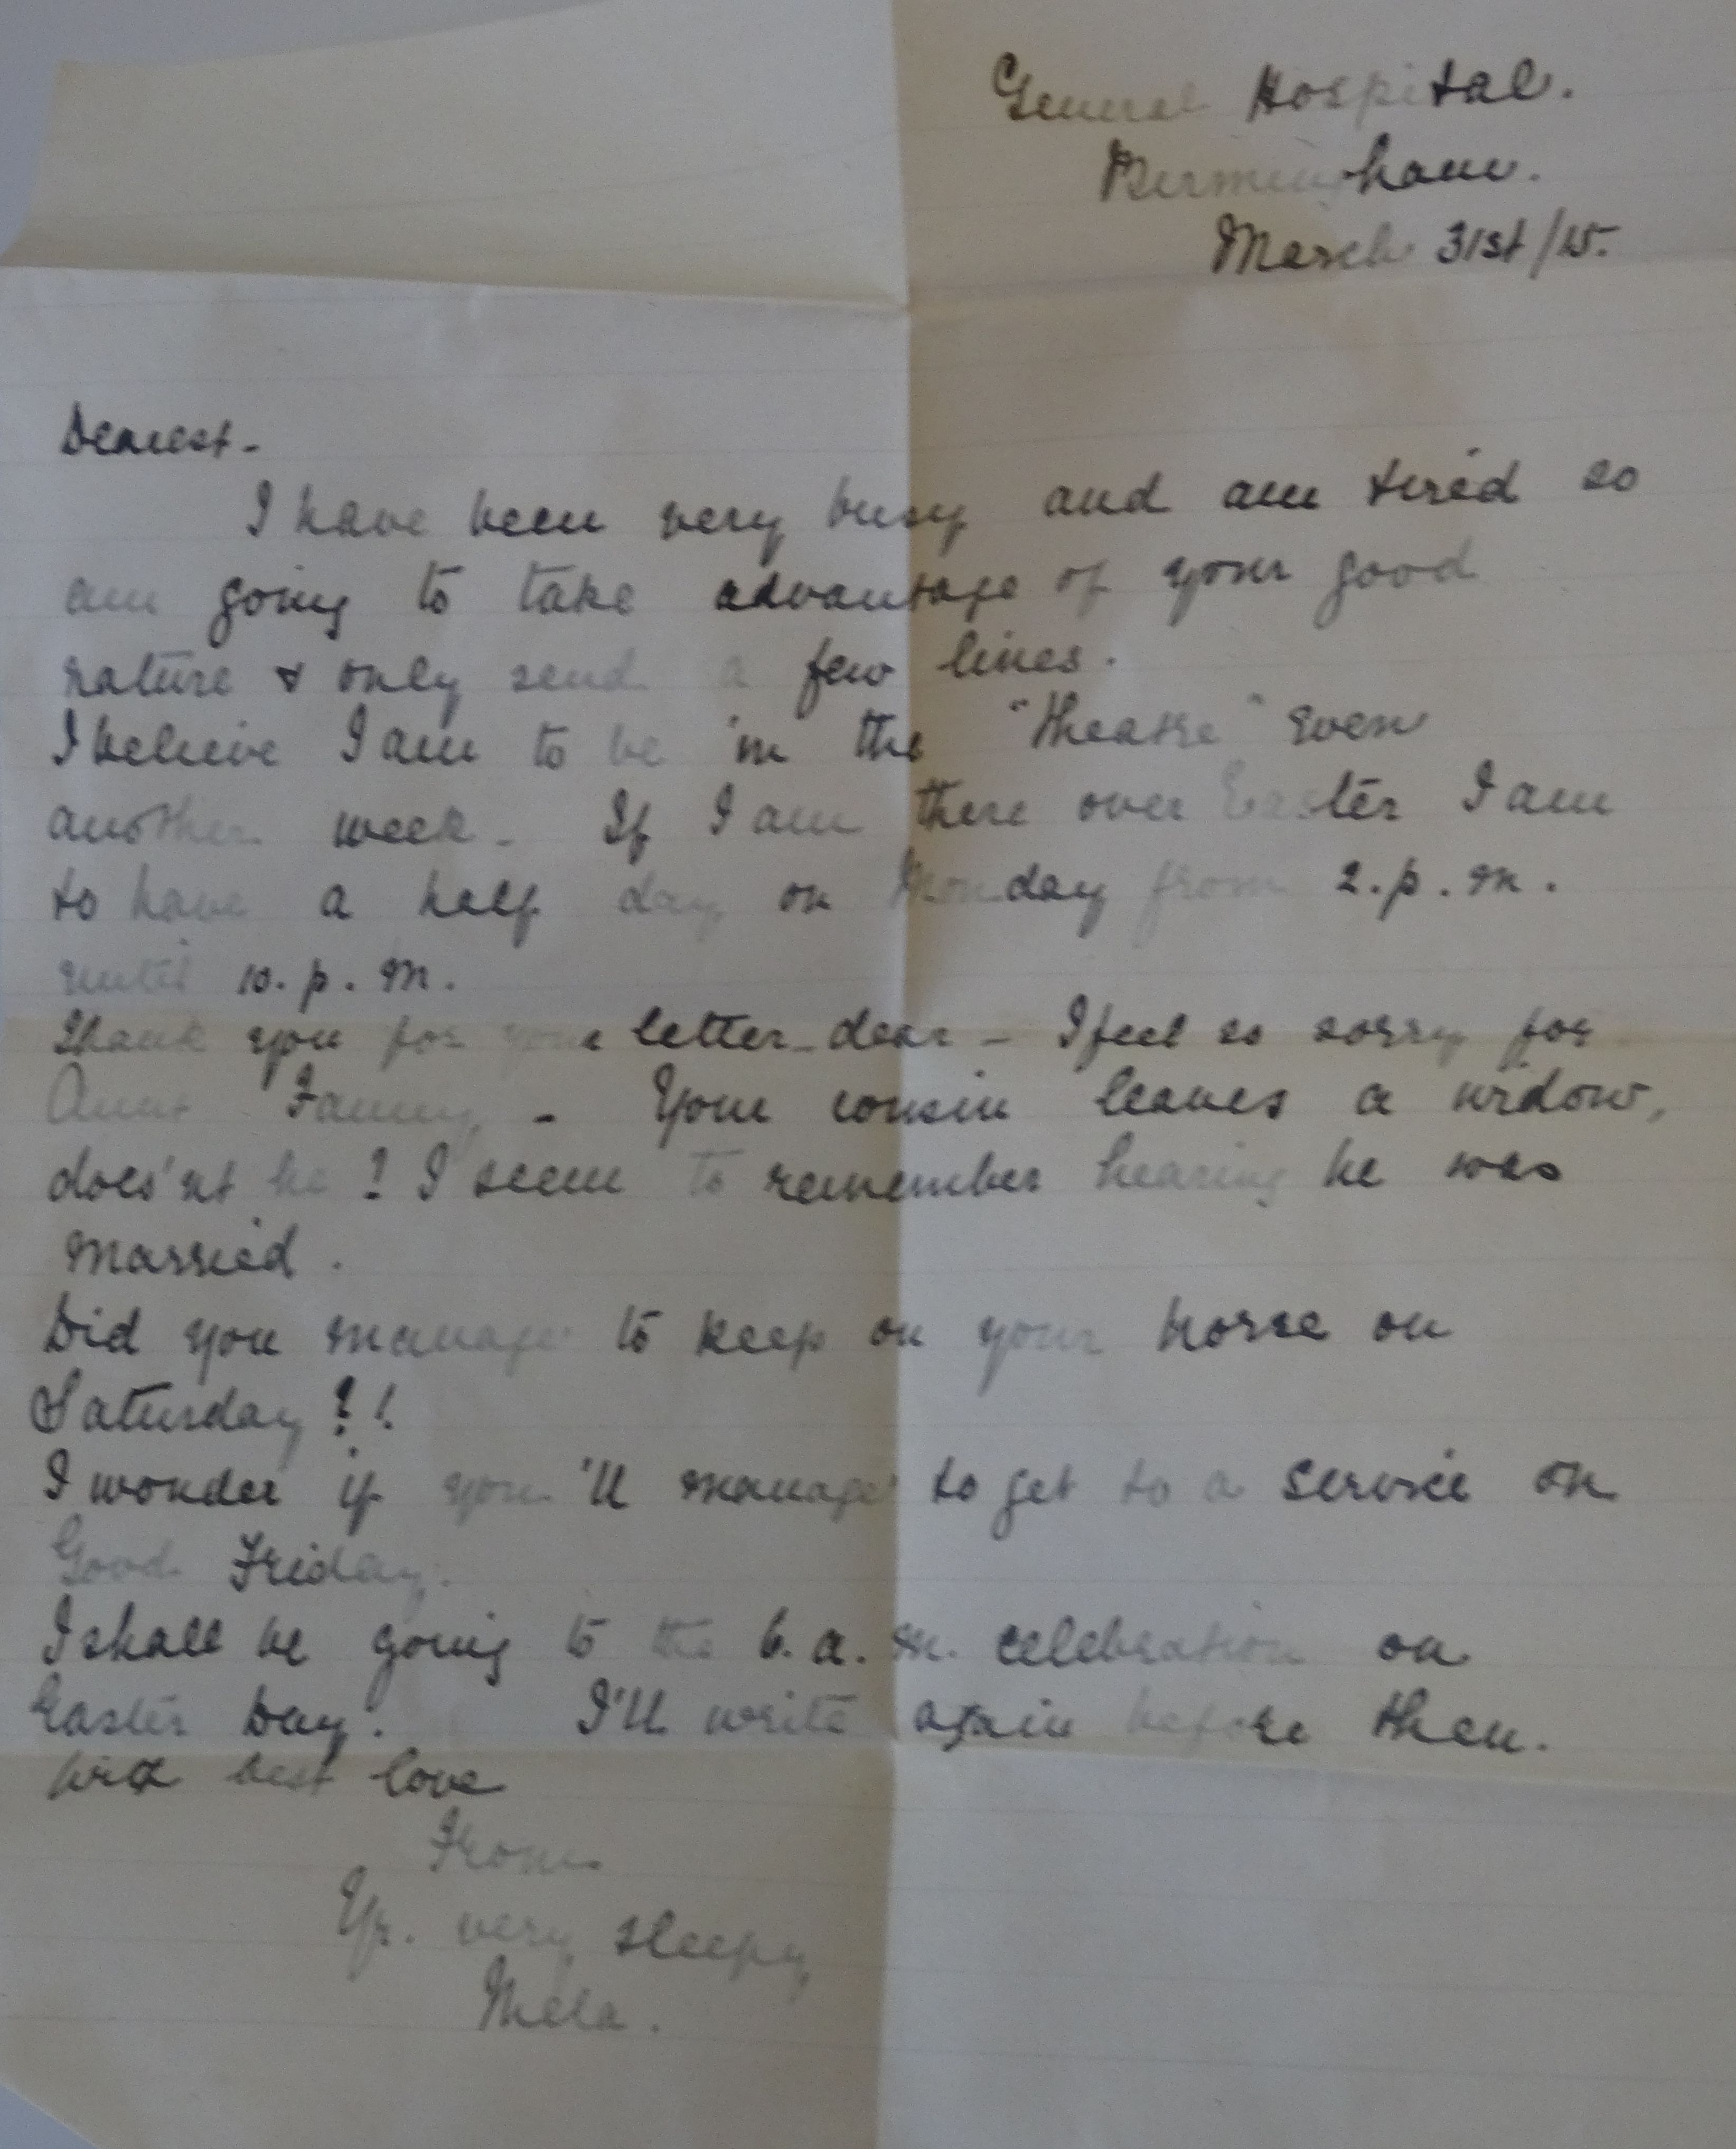 General Hospital.
Birmingham.
March 31st/15.
Dearest -
I have been very busy and am tired so
am going to take advantage of your good
nature & only send a few lines.
I believe I am to be in the "Theatre" even
another week - If I am there over Easter I am
to have a half day on Monday from 2.p.m.
until 10.p.m.
Thank you for your letter - dear - I feel so sorry for
Aunt Fanny - Your cousin leaves a widow,
does'nt he? I seem to remember hearing he was
married.
Did you manage to keep on your horse on
Saturday?!
I wonder if you'll manage to get to a service on
Good Friday.
I shall be going to the 6.a.m. celebration on
Easter Day. I'll write again before then.
With best love
From
Yr. very sleepy
Mela.